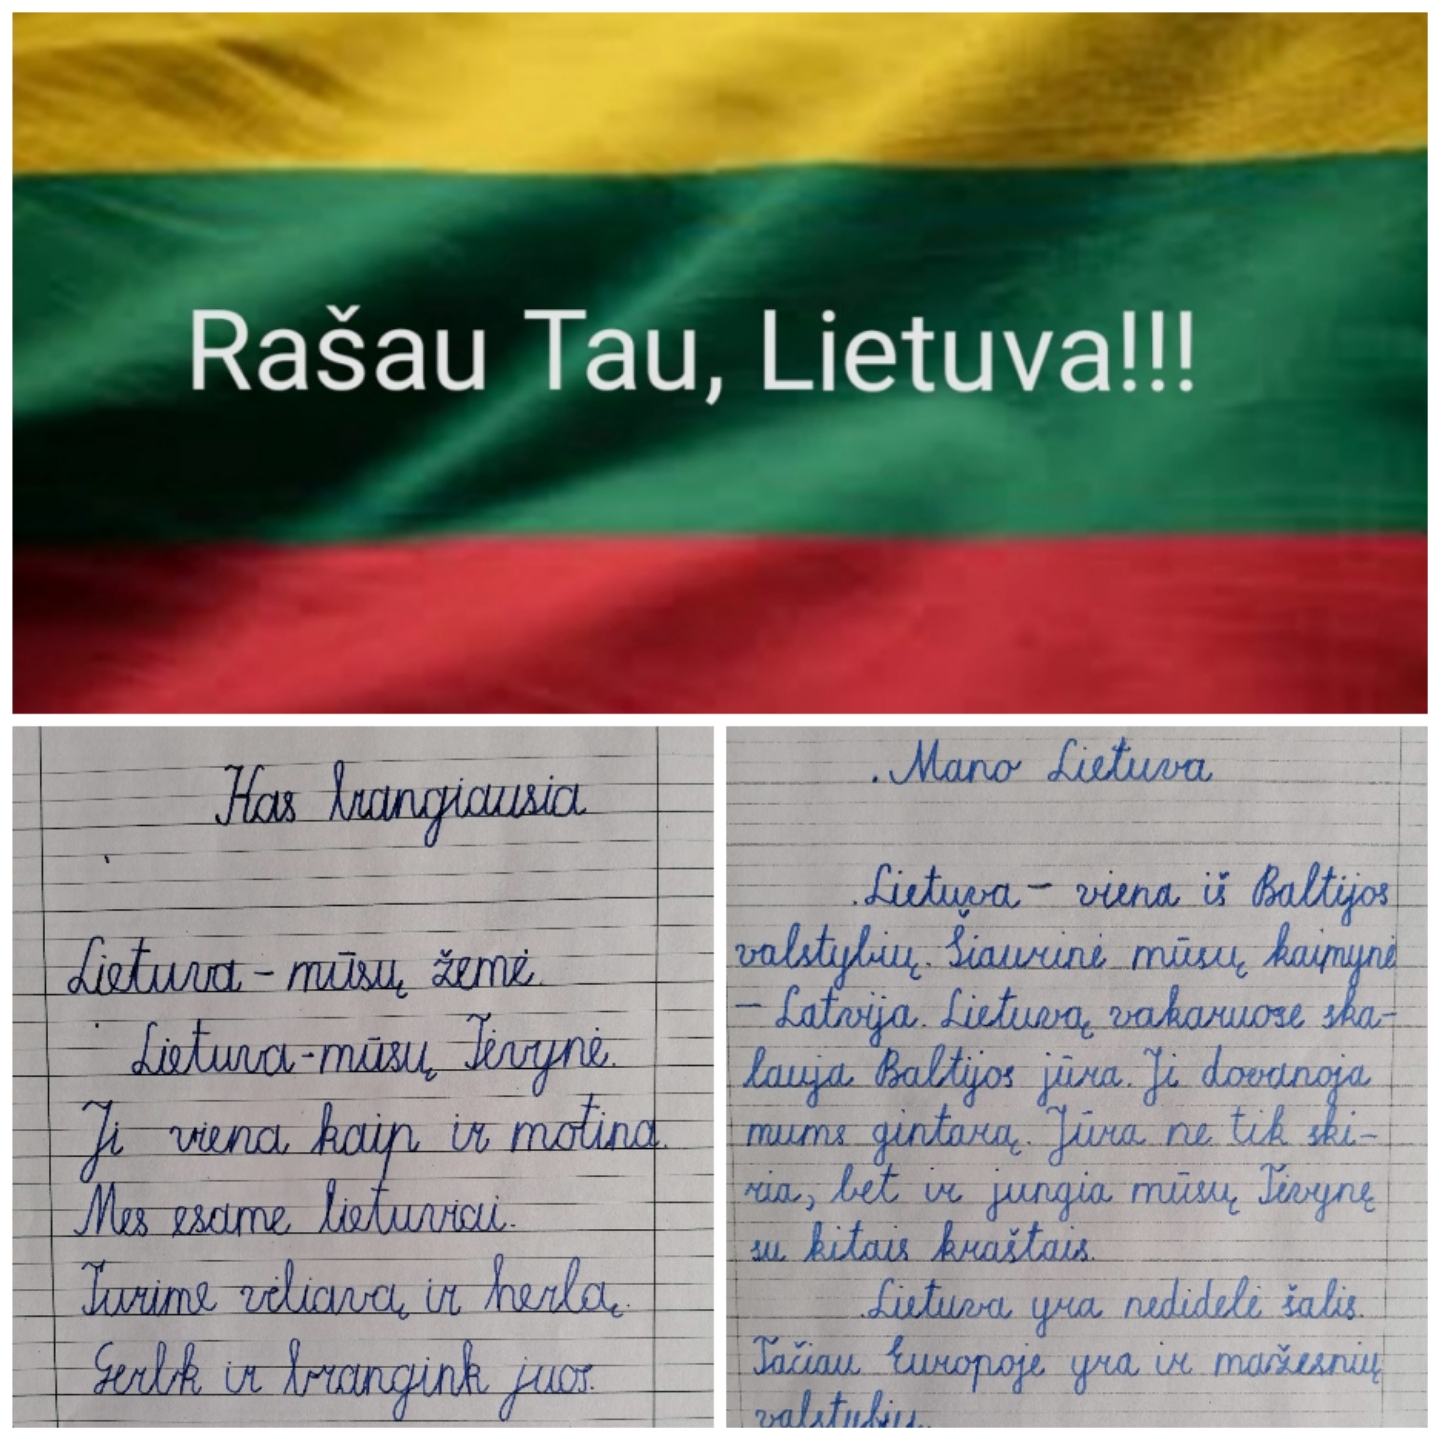 Rašau Tau, Lietuva!!!
Kas brangiausia
Lietuva – mūsų žemė.
Lietuva – mūsų Tėvynė.
Ji viena kaip ir motina.
Mes esame lietuviai.
Turime vėliavą ir herbą.
Gerbk ir brangink juos.
Mano Lietuva
Lietuva – viena iš Baltijos
valstybių. Šiaurinė mūsų kaimynė
– Latvija. Lietuvą vakaruose ska-
lauja Baltijos jūra. Ji dovanoja
mums gintarą. Jūra ne tik ski-
ria, bet ir jungia mūsų Tėvynę
su kitais kraštais.
Lietuva yra nedidelė šalis.
Tačiau Europoje yra ir mažesnių
valstybių.